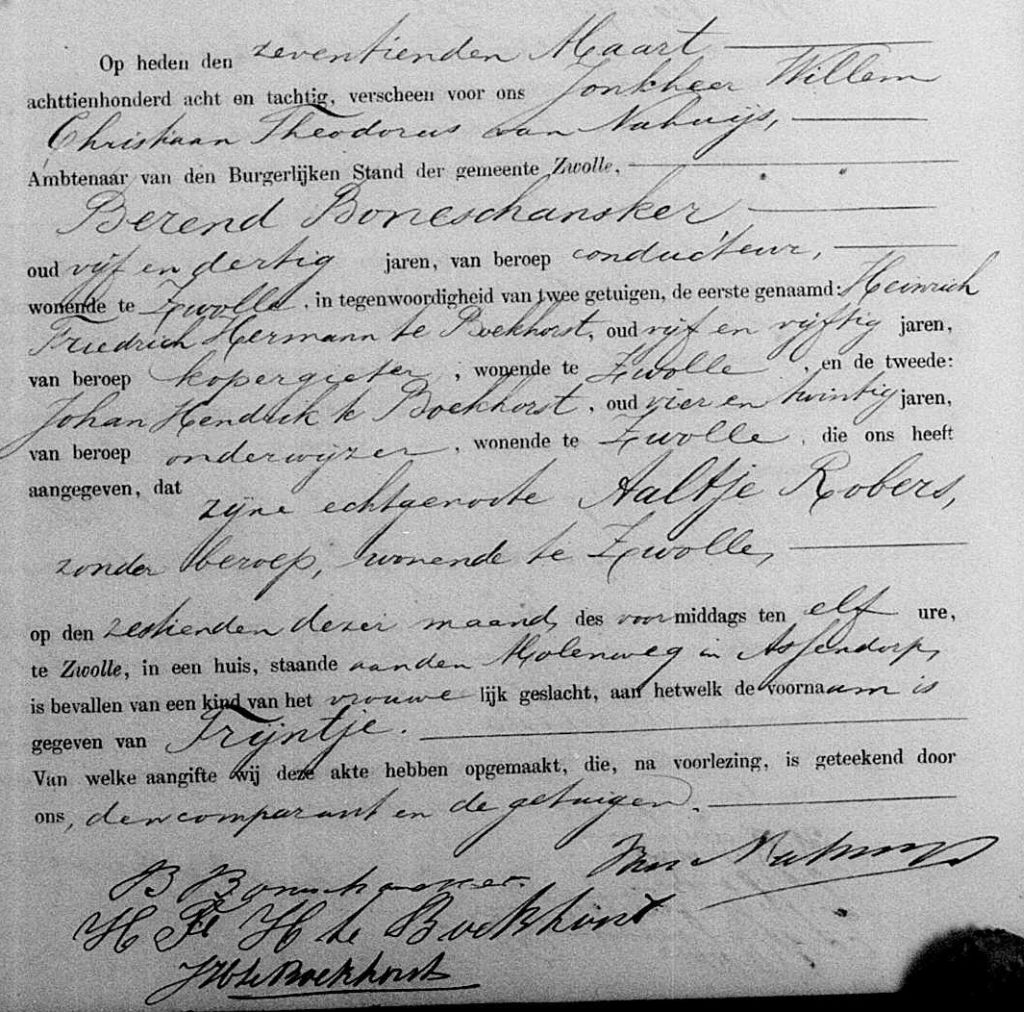 Op heden den zeventienden Maart
achttienhonderd acht en tachtig, verscheen voor ons Jonkheer Willem
Christiaan Theodorus van Nahuijs,
Ambtenaar van den Burgerlijken Stand der gemeente Zwolle,
Berend Boneschansker
oud vijf en dertig jaren, van beroep conducteur,
wonende te Zwolle, in tegenwoordigheid van twee getuigen, de eerste genaamd: Heinrich
Friedrich Hermann te Boekhorst, oud vijf en vijftig jaren,
van beroep kopergieter, wonende te Zwolle, en de tweede:
Johan Hendrik te Boekhorst, oud vier en twintig jaren,
van beroep onderwijzer, wonende te Zwolle, die ons heeft
aangegeven, dat zijne echtgenoote Aaltje Robers,
zonder beroep, wonende te Zwolle,
op den zestienden dezer maand, des voormiddags ten elf ure,
te Zwolle, in een huis, staande aan den Molenweg in Assendorp,
is bevallen van een kind van het vrouwelijk geslacht, aan hetwelk de voornaam is
gegeven van Trijntje.
Van welke aangifte wij deze akte hebben opgemaakt, die, na voorlezing, is geteekend door
ons, den comparant en de getuigen.
B Boneschansker. van Nahuys
H Fr H te Boekhorst
JH te Boekhorst